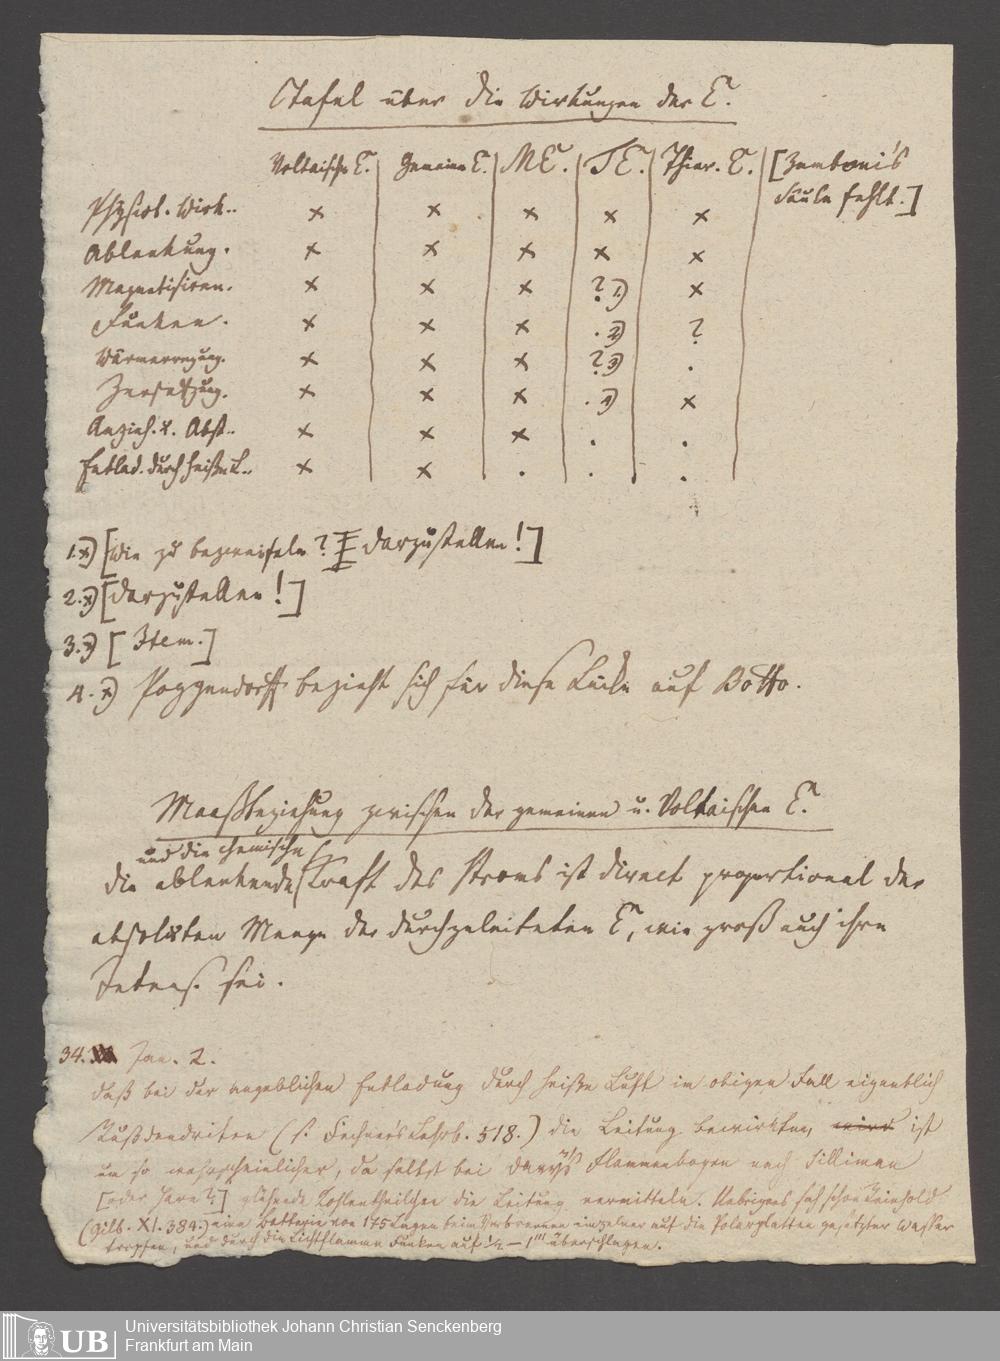 Tafel über die Wirkungen der E.
Voltaische E. | Gemeine E. | ME. | TE. | Thier. E. | [Zamboni's
Säule fehlt.]
Physiol. Wirk.. × × × × ×
Ablenkung. × × × × ×
Magnetisiren. × × × ?(1. ×
Funken. × × × .(2. ?
Wärmeerregung. × × × ?(3. .
Zersetzung. × × × .(4. ×
Anzieh. u. Abst.. × × × . .
Entlad. durch heiße L.. × × . . .
1.×) [Wie zu bezweifeln? darzustellen!]
2.×) [darzustellen!]
3.×) [Item.]
4.×) Poggendorff bezieht sich für diese Lücke auf Botto.
Maaßbeziehung zwischen der gemeinen u. Voltaischen E.
und die chemische
die ablenkende Kraft des Stroms ist direct proportional der
absoluten Menge der durchgeleiteten E, wie groß auch ihre
Intens. sei.
34. Jan. 2.
daß bei der angeblichen Entladung durch heiße Luft im obigen Fall eigentlich
Rußdendriten (s. Fechner's Lehrb. 518.) die Leitung bewirkten, wird ist
um so wahrscheinlicher, da selbst bei Davy's Flammenbogen nach Silliman
[oder Hare?] glühende Kohlentheilchen die Leitung vermitteln. Uebrigens sah schon Reinhold
(Gilb. XI. 384.) eine Batterie von 175 Lagen beim Verbrennen einzelner auf die Polarplatten gesetzter Wasser
tropfen, und durch die Lichtflamme Funken auf ½ – 1''' überschlagen.
UB
Universitätsbibliothek Johann Christian Senckenberg
Frankfurt am Main